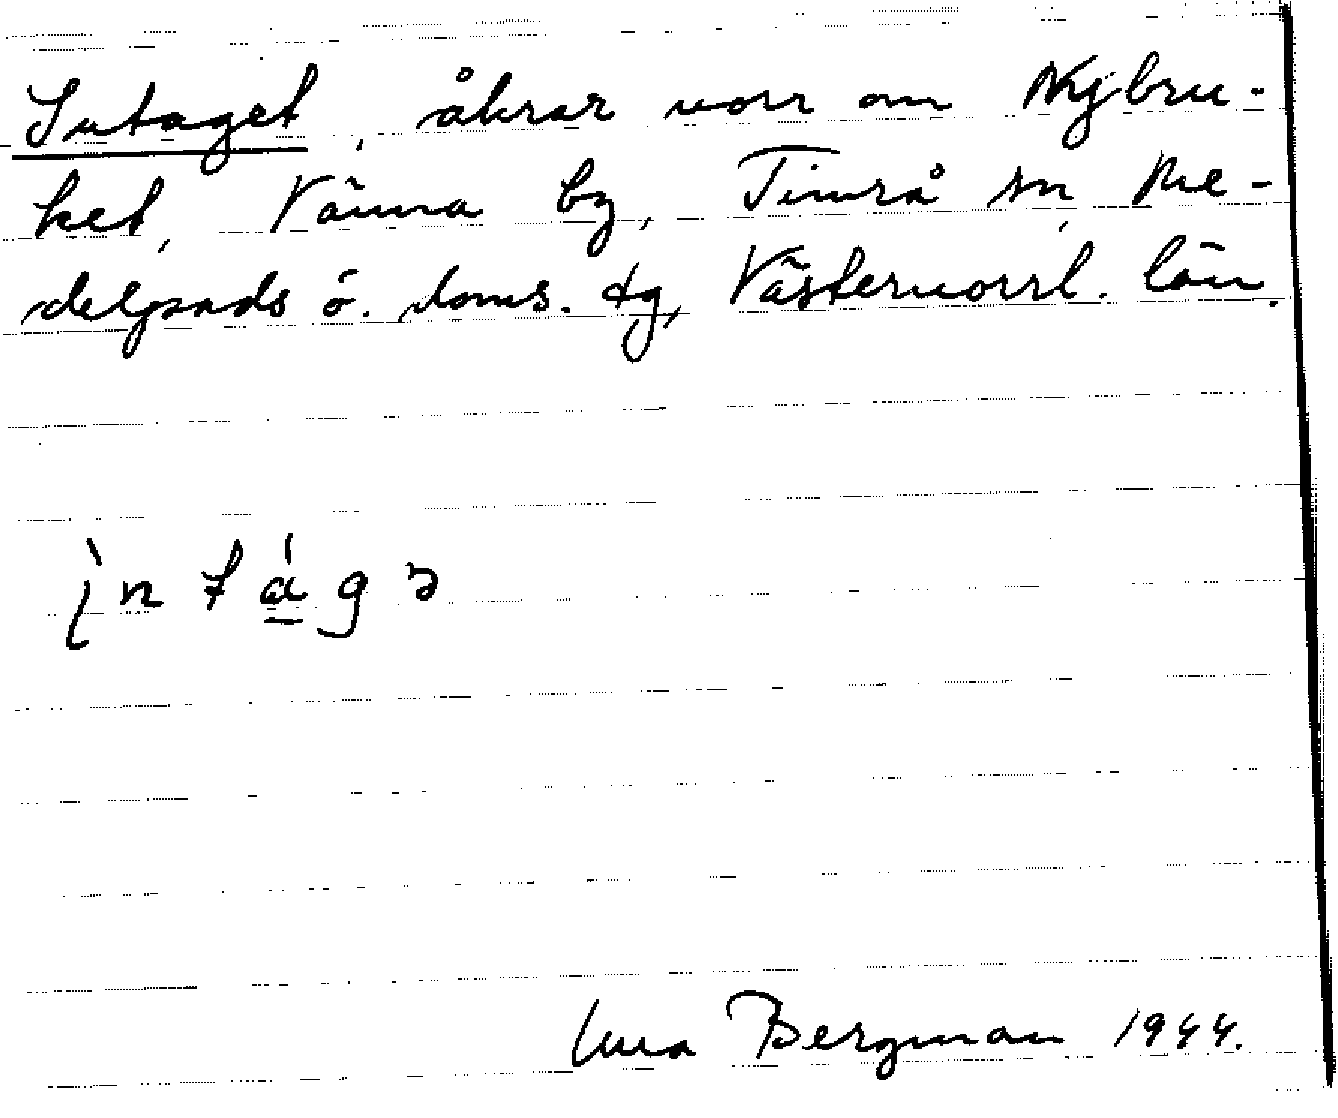 Intaget, åkrar norr om Nybru-
ket, Vänna by, Timrå sn, Me-
delpads ö. doms. tg, Västernorrl. län.
ìn t á̲ g ə
Bergman 1944.